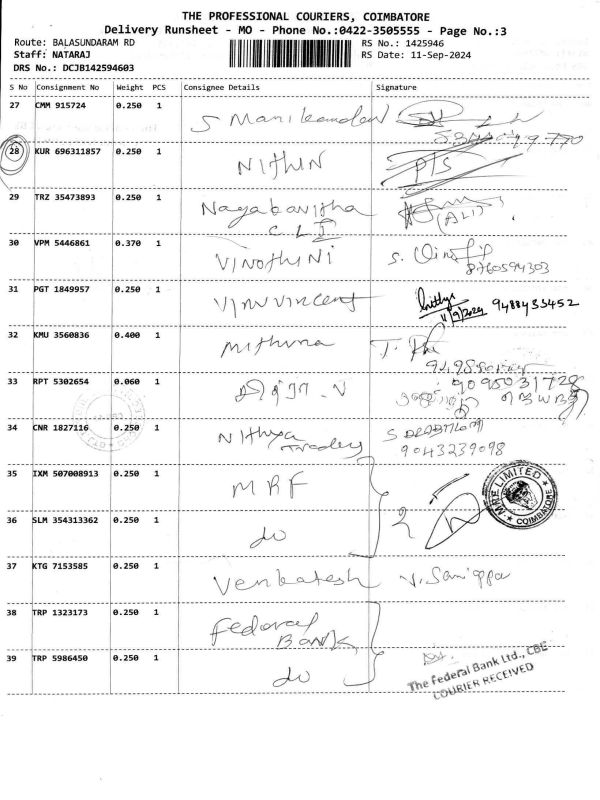 THE PROFESSIONAL COURIERS, COIMBATORE
Delivery Runsheet - MO - Phone No.:0422-3505555 - Page No.:3
Route: BALASUNDARAM RD RS No.: 1425946
Staff: NATARAJ RS Date: 11-Sep-2024
DRS No.: DCJB142594603
S No Consignment No Weight PCS Consignee Details Signature
27 CMM 915724 0.250 1 S Manikandan
28 KUR 696311857 0.250 1 Nithin
29 TRZ 35473893 0.250 1 Nagabavitha
30 VPM 5446861 0.370 1 Vinothini S.
8760594303
31 PGT 1849957 0.250 1 Vinu Vincent
11/9/2024 9488433452
32 KMU 3560836 0.400 1 Mithuna
33 RPT 5302654 0.060 1
9095031728
34 CNR 1827116 0.250 1 Nithya Traders S
9043239098
35 IXM 507008913 0.250 1 MRF
36 SLM 354313362 0.250 1 do 2
MRF LIMITED
COIMBATORE
37 KTG 7153585 0.250 1 Venkatesh
38 TRP 1323173 0.250 1 Federal Bank
39 TRP 5986450 0.250 1 do
The Federal Bank Ltd., CBE
COURIER RECEIVED